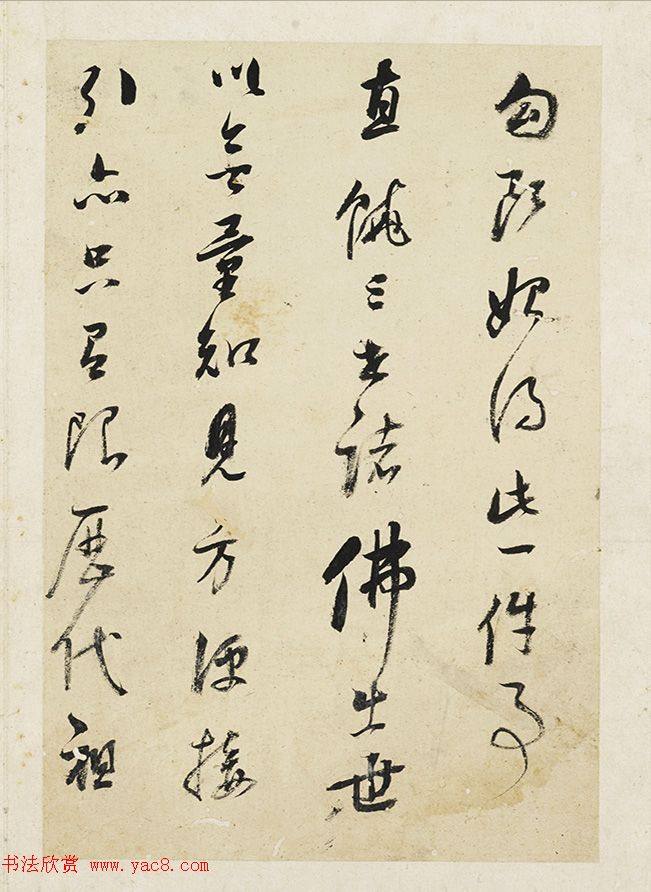 始得此一件事
直饒三世諸佛出世
以無量知見方便接
引亦只有限歷代祖
书法欣赏 www.yac8.com